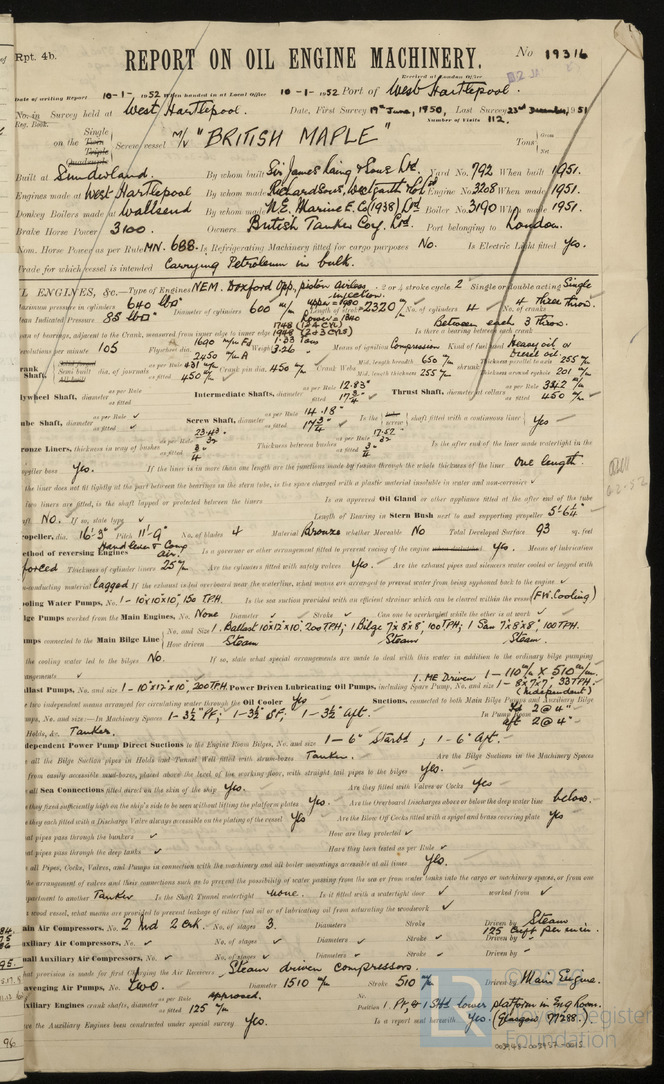 Rpt. 4b.
REPORT ON OIL ENGINE MACHINERY.
No 19316
Received at London Office
Date of writing Report 10-1-1952 When handed in at Local Office 10-1-1952 Port of West Hartlepool.
No. in Survey held at West Hartlepool. Date, First Survey 19th June, 1950, Last Survey 23rd December, 1951
Reg. Book. Number of Visits 112.
Single
on the Twin Triple Quadruple Screw vessel M/V "BRITISH MAPLE" Tons
Built at Sunderland. By whom built Sir James Laing & Sons Ltd. Yard No. 792 When built 1951.
Engines made at West Hartlepool By whom made Richardsons, Westgarth & Co Ltd Engine No. 3208 When made 1951.
Donkey Boilers made at Wallsend By whom made N.E. Marine E. Co (1938) Ltd Boiler No. 3190 When made 1951.
Brake Horse Power 3100. Owners British Tanker Coy. Ltd. Port belonging to London.
Nom. Horse Power as per Rule MN. 688. Is Refrigerating Machinery fitted for cargo purposes No. Is Electric Light fitted Yes.
Trade for which vessel is intended Carrying Petroleum in bulk.
OIL ENGINES, &c.—Type of Engines NEM. Doxford Opp. piston Airless injection. 2 or 4 stroke cycle 2 Single or double acting Single
Maximum pressure in cylinders 640 lbs Diameter of cylinders 600 m/m Length of stroke 2320 m/m No. of cylinders 4 No. of cranks 4 three throw.
Mean Indicated Pressure 85 lbs
Span of bearings, adjacent to the Crank, measured from inner edge to inner edge Is there a bearing between each crank Between each 3 throw.
Revolutions per minute 105 Flywheel dia. Weight Means of ignition Compression Kind of fuel used Heavy oil or Diesel oil.
Crank Shaft, dia. of journals as per Rule 431 m/m as fitted 450 m/m Crank pin dia. 450 m/m Crank Webs Mid. length breadth 650 m/m Mid. length thickness 255 m/m shrunk Thickness parallel to axis 255 m/m Thickness around eyehole 201 m/m
Flywheel Shaft, diameter as per Rule as fitted Intermediate Shafts, diameter as per Rule 12.83" as fitted 17 3/4" Thrust Shaft, diameter at collars as per Rule 342 m/m as fitted 450 m/m
Tube Shaft, diameter as per Rule as fitted Screw Shaft, diameter as per Rule 14.18" as fitted 17 3/4 Is the tube screw shaft fitted with a continuous liner Yes
Bronze Liners, thickness in way of bushes as per Rule as fitted 3/4 Thickness between bushes as per Rule as fitted 3/4 Is the after end of the liner made watertight in the
propeller boss Yes. If the liner is in more than one length are the junctions made by fusion through the whole thickness of the liner One length.
If the liner does not fit tightly at the part between the bearings in the stern tube, is the space charged with a plastic material insoluble in water and non-corrosive
If two liners are fitted, is the shaft lapped or protected between the liners Is an approved Oil Gland or other appliance fitted at the after end of the tube
shaft No. If so, state type Length of Bearing in Stern Bush next to and supporting propeller
Propeller, dia. 16'-3" Pitch 11'-9" No. of blades 4 Material Bronze whether Moveable No Total Developed Surface 93 sq. feet
Method of reversing Engines Hand lever & Comp air. Is a governor or other arrangement fitted to prevent racing of the engine when declutched Yes. Means of lubrication
forced Thickness of cylinder liners 25 m/m Are the cylinders fitted with safety valves Yes. Are the exhaust pipes and silencers water cooled or lagged with
non-conducting material lagged If the exhaust is led overboard near the waterline, what means are arranged to prevent water from being syphoned back to the engine
Cooling Water Pumps, No. 1 - 10"x10"x10", 150 TPH. Is the sea suction provided with an efficient strainer which can be cleared within the vessel (F.W. Cooling)
Bilge Pumps worked from the Main Engines, No. None Diameter Stroke Can one be overhauled while the other is at work
Pumps connected to the Main Bilge Line No. and Size 1. Ballast 10"x12"x10", 200 TPH; 1 Bilge 7"x8"x8", 100 TPH; 1 San 7"x8"x8", 100 TPH.
How driven Steam Steam Steam.
Is the cooling water led to the bilges No. If so, state what special arrangements are made to deal with this water in addition to the ordinary bilge pumping
arrangements
Ballast Pumps, No. and size 1 - 10"x12"x10", 200 TPH. Power Driven Lubricating Oil Pumps, including Spare Pump, No. and size 1. ME Driven 1 - 110 m/m x 510 m/m. 1 - 8"x7"x7" 33 TPH (independent)
Are two independent means arranged for circulating water through the Oil Cooler Yes Suctions, connected to both Main Bilge Pumps and Auxiliary Bilge
Pumps, No. and size:—In Machinery Spaces 1 - 3½" PF; 1 - 3½" SF; 1 - 3½" Aft. In Pump Room 2 @ 4" aft 2 @ 4"
In Holds, &c. Tanker.
Independent Power Pump Direct Suctions to the Engine Room Bilges, No. and size 1 - 6" Starbd; 1 - 6" Aft.
Are all the Bilge Suction pipes in Holds and Tunnel Well fitted with strum boxes Tanker. Are the Bilge Suctions in the Machinery Spaces
led from easily accessible mud-boxes, placed above the level of the working floor, with straight tail pipes to the bilges Yes.
Are all Sea Connections fitted direct on the skin of the ship Yes. Are they fitted with Valves or Cocks Yes
Are they fixed sufficiently high on the ship's side to be seen without lifting the platform plates Yes. Are the Overboard Discharges above or below the deep water line below.
Are they each fitted with a Discharge Valve always accessible on the plating of the vessel Yes Are the Blow Off Cocks fitted with a spigot and brass covering plate Yes
What pipes pass through the bunkers How are they protected
What pipes pass through the deep tanks Have they been tested as per Rule
Are all Pipes, Cocks, Valves, and Pumps in connection with the machinery and all boiler mountings accessible at all times Yes.
Is the arrangement of valves and their connections such as to prevent the possibility of water passing from the sea or from water tanks into the cargo or machinery spaces, or from one
compartment to another Tanker Is the Shaft Tunnel watertight none. Is it fitted with a watertight door worked from
If a wood vessel, what means are provided to prevent leakage of either fuel oil or of lubricating oil from saturating the woodwork
Main Air Compressors, No. 2 No. of stages 3. Diameters Stroke Driven by Steam
125 cuft per min.
Auxiliary Air Compressors, No. No. of stages Diameters Stroke Driven by
Small Auxiliary Air Compressors, No. No. of stages Diameters Stroke Driven by
What provision is made for first Charging the Air Receivers Steam driven compressors.
Scavenging Air Pumps, No. two. Diameter 1510 m/m Stroke 510 m/m Driven by Main Engine.
Auxiliary Engines crank shafts, diameter as per Rule approved. as fitted 125 m/m No. Position 1 Pt, & 1 Stbd lower platform in Eng Room.
Have the Auxiliary Engines been constructed under special survey. Yes. Is a report sent herewith Yes. (Glasgow 77288.)
© 2020
Lloyd's Register
Foundation
003948-003957-0012